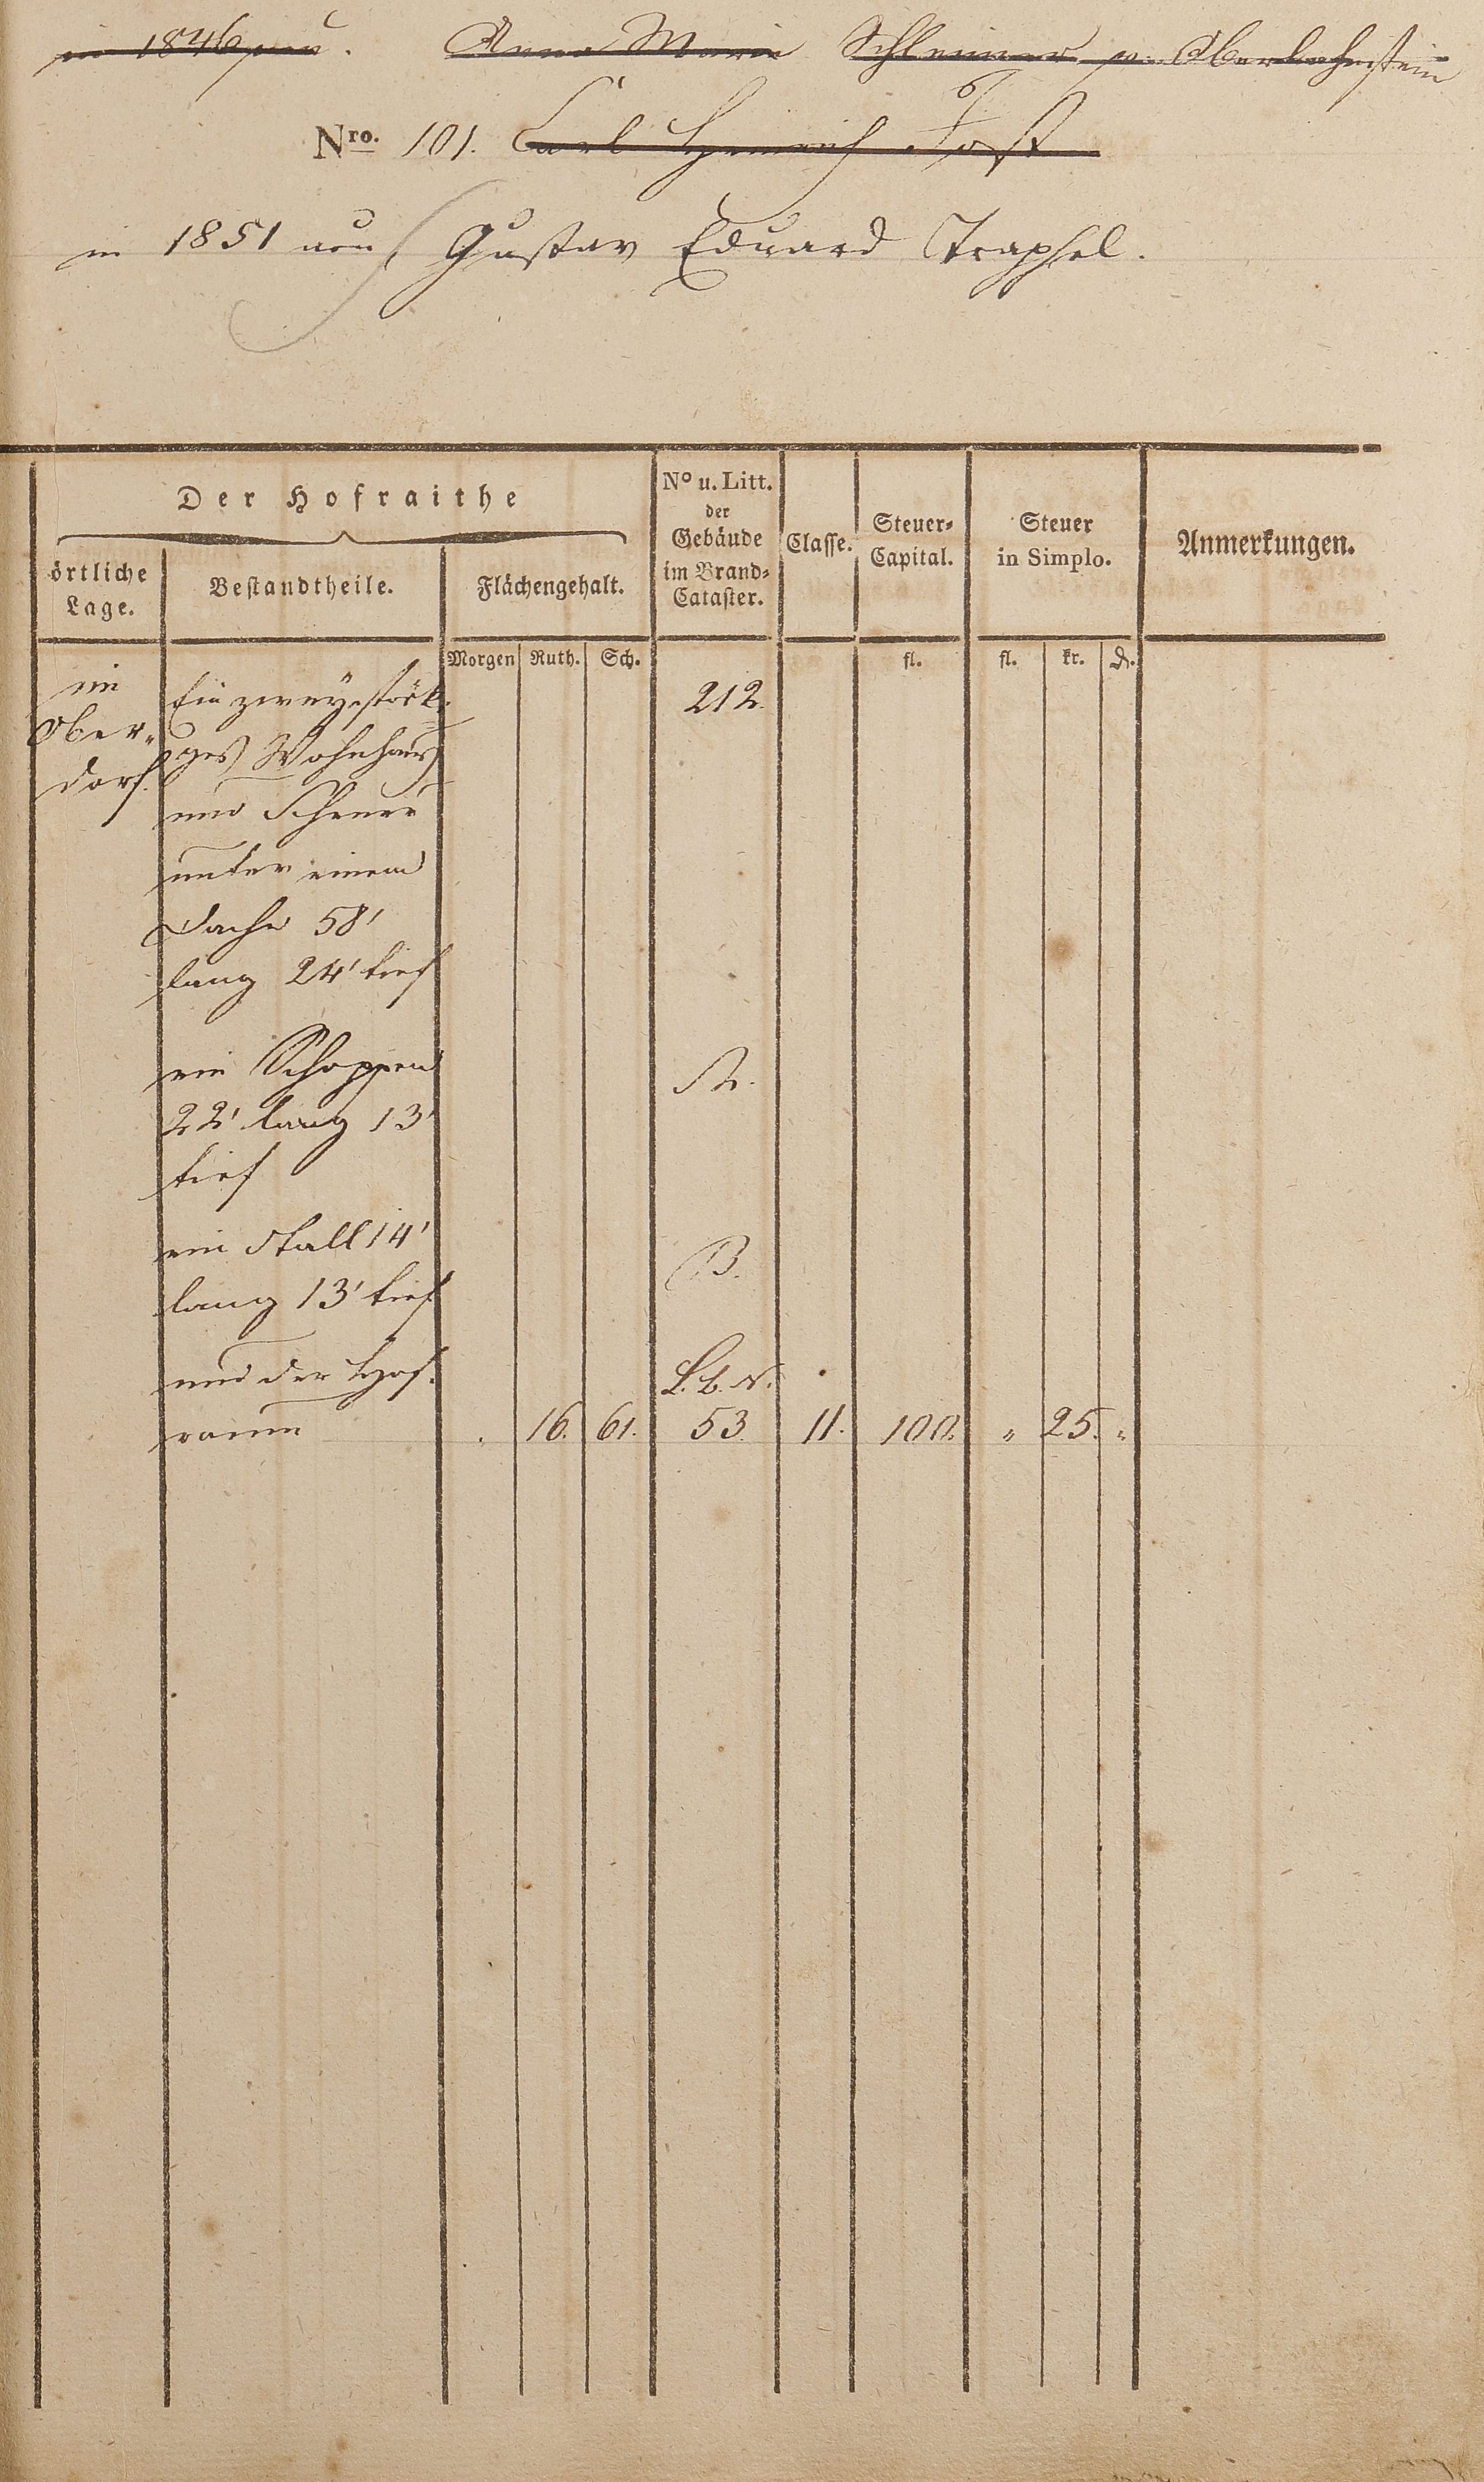 in 1846 nun. Anna Maria Schleimer v. Oberlahnstein
Nro. 101. Carl Heinrich Jost
in 1851 nun Gustav Eduard Trapphel.
Der Hofraithe
örtliche
Lage.
Bestandtheile.
Flächengehalt.
No u. Litt.
der
Gebäude
im Brand-
Cataster.
Classe.
Steuer-
Capital.
Steuer
in Simplo.
Anmerkungen.
Morgen Ruth. Sch. fl. fl. kr. d.
im
Ober-
dorf.
Ein zweystöck-
ges Wohnhaus
und Scheuer
unter einem
Dache 58'
lang 24' tief
212.
ein Schoppen
22' lang 13'
tief
A.
ein Stall 14'
lang 13' tief
B.
und der Hof-
raum
L. b. N.
. 16. 61. 53. 11. 100. " 25. "